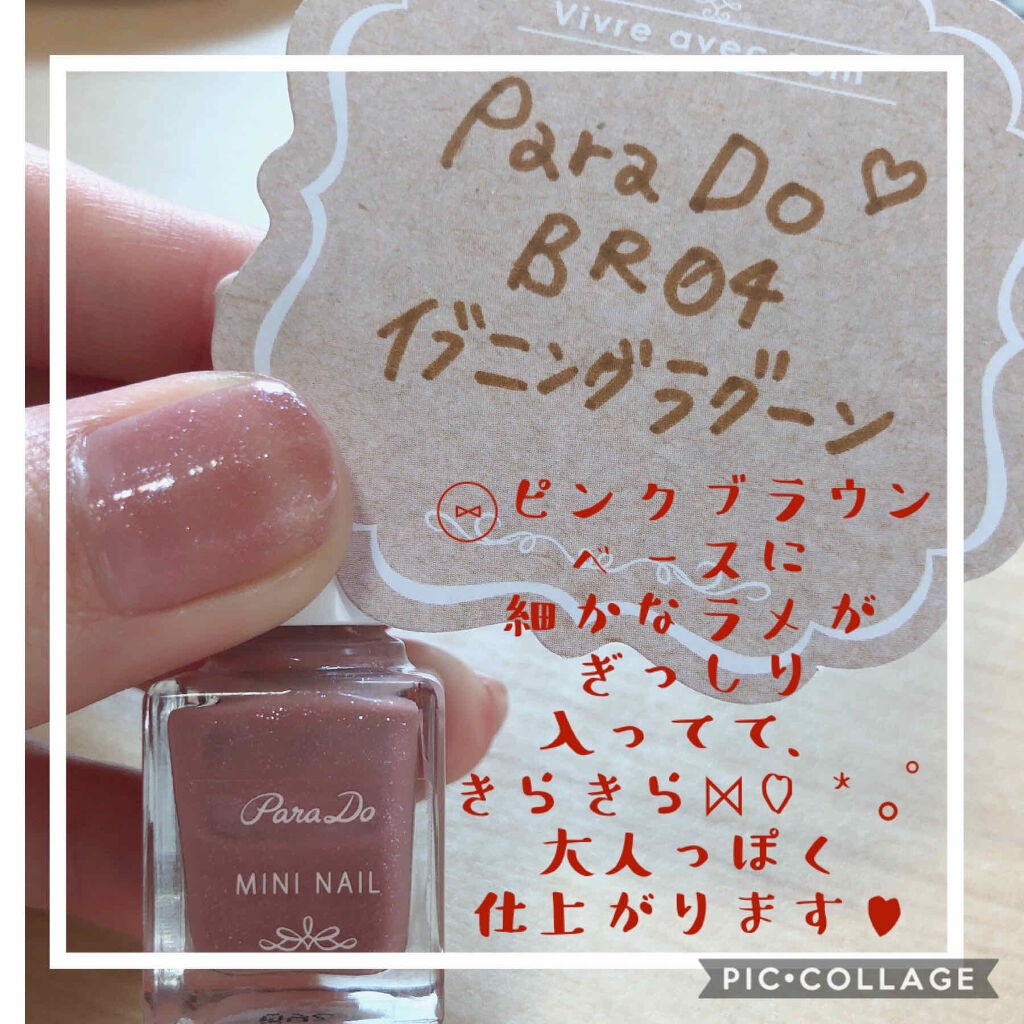 vivre avec
Para Do ♡
BR04
イブニングラグーン
⋈ ピンクブラウン
ベースに
細かなラメが
ぎっしり
入ってて、
きらきら⋈♡*。゚
大人っぽく
仕上がります♥
ParaDo
MINI NAIL
PIC•COLLAGE